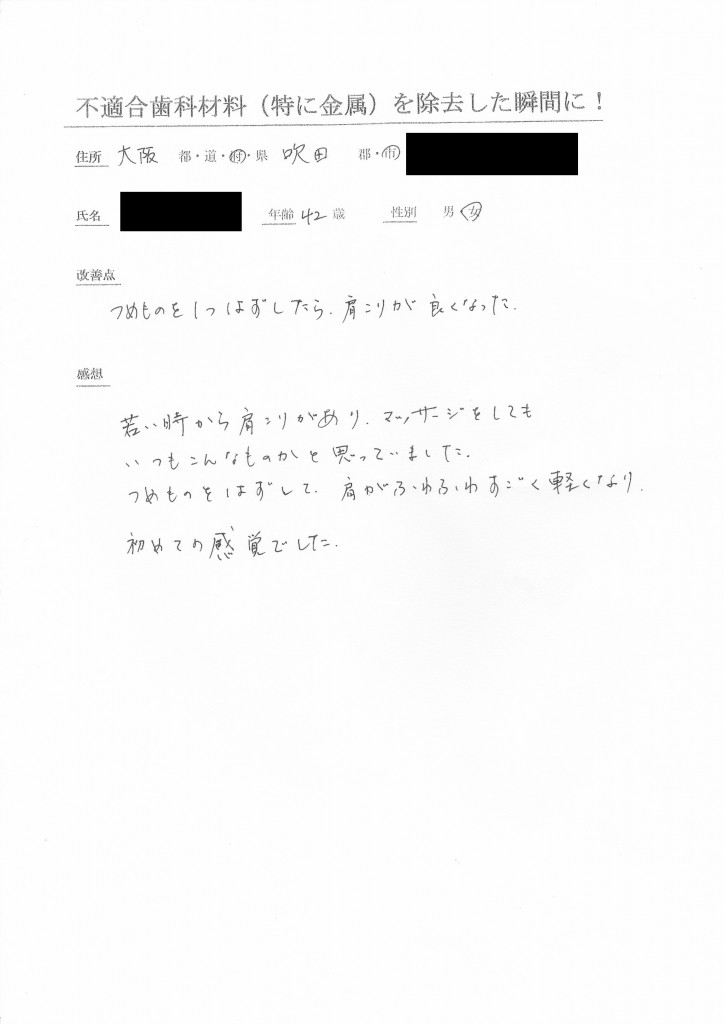 不適合歯科材料（特に金属）を除去した瞬間に！
住所 大阪 都・道・府・県 吹田 郡・市
氏名 年齢 42 歳 性別 男 女
改善点
つめものを1つはずしたら、肩こりが良くなった。
感想
若い時から肩こりがあり、マッサージをしても
いつもこんなものかと思っていました。
つめものをはずして、肩がふわふわすごく軽くなり、
初めての感覚でした。